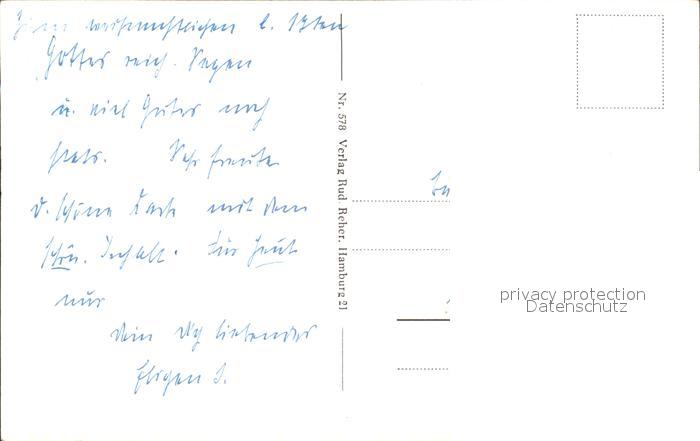 Zum weihnachtlichen l.
Gottes reich. Segen
u. viel Gutes noch
stets. Sehr freute
d. schöne Karte mit dem
schön. Inhalt. Für heut
nur
Dein Dich liebender
Nr. 578 Verlag Rud. Reher, Hamburg 21
privacy protection
Datenschutz